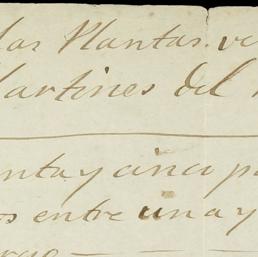 las Plantas. ve
Martines del
enta y cinco p
os entre una y